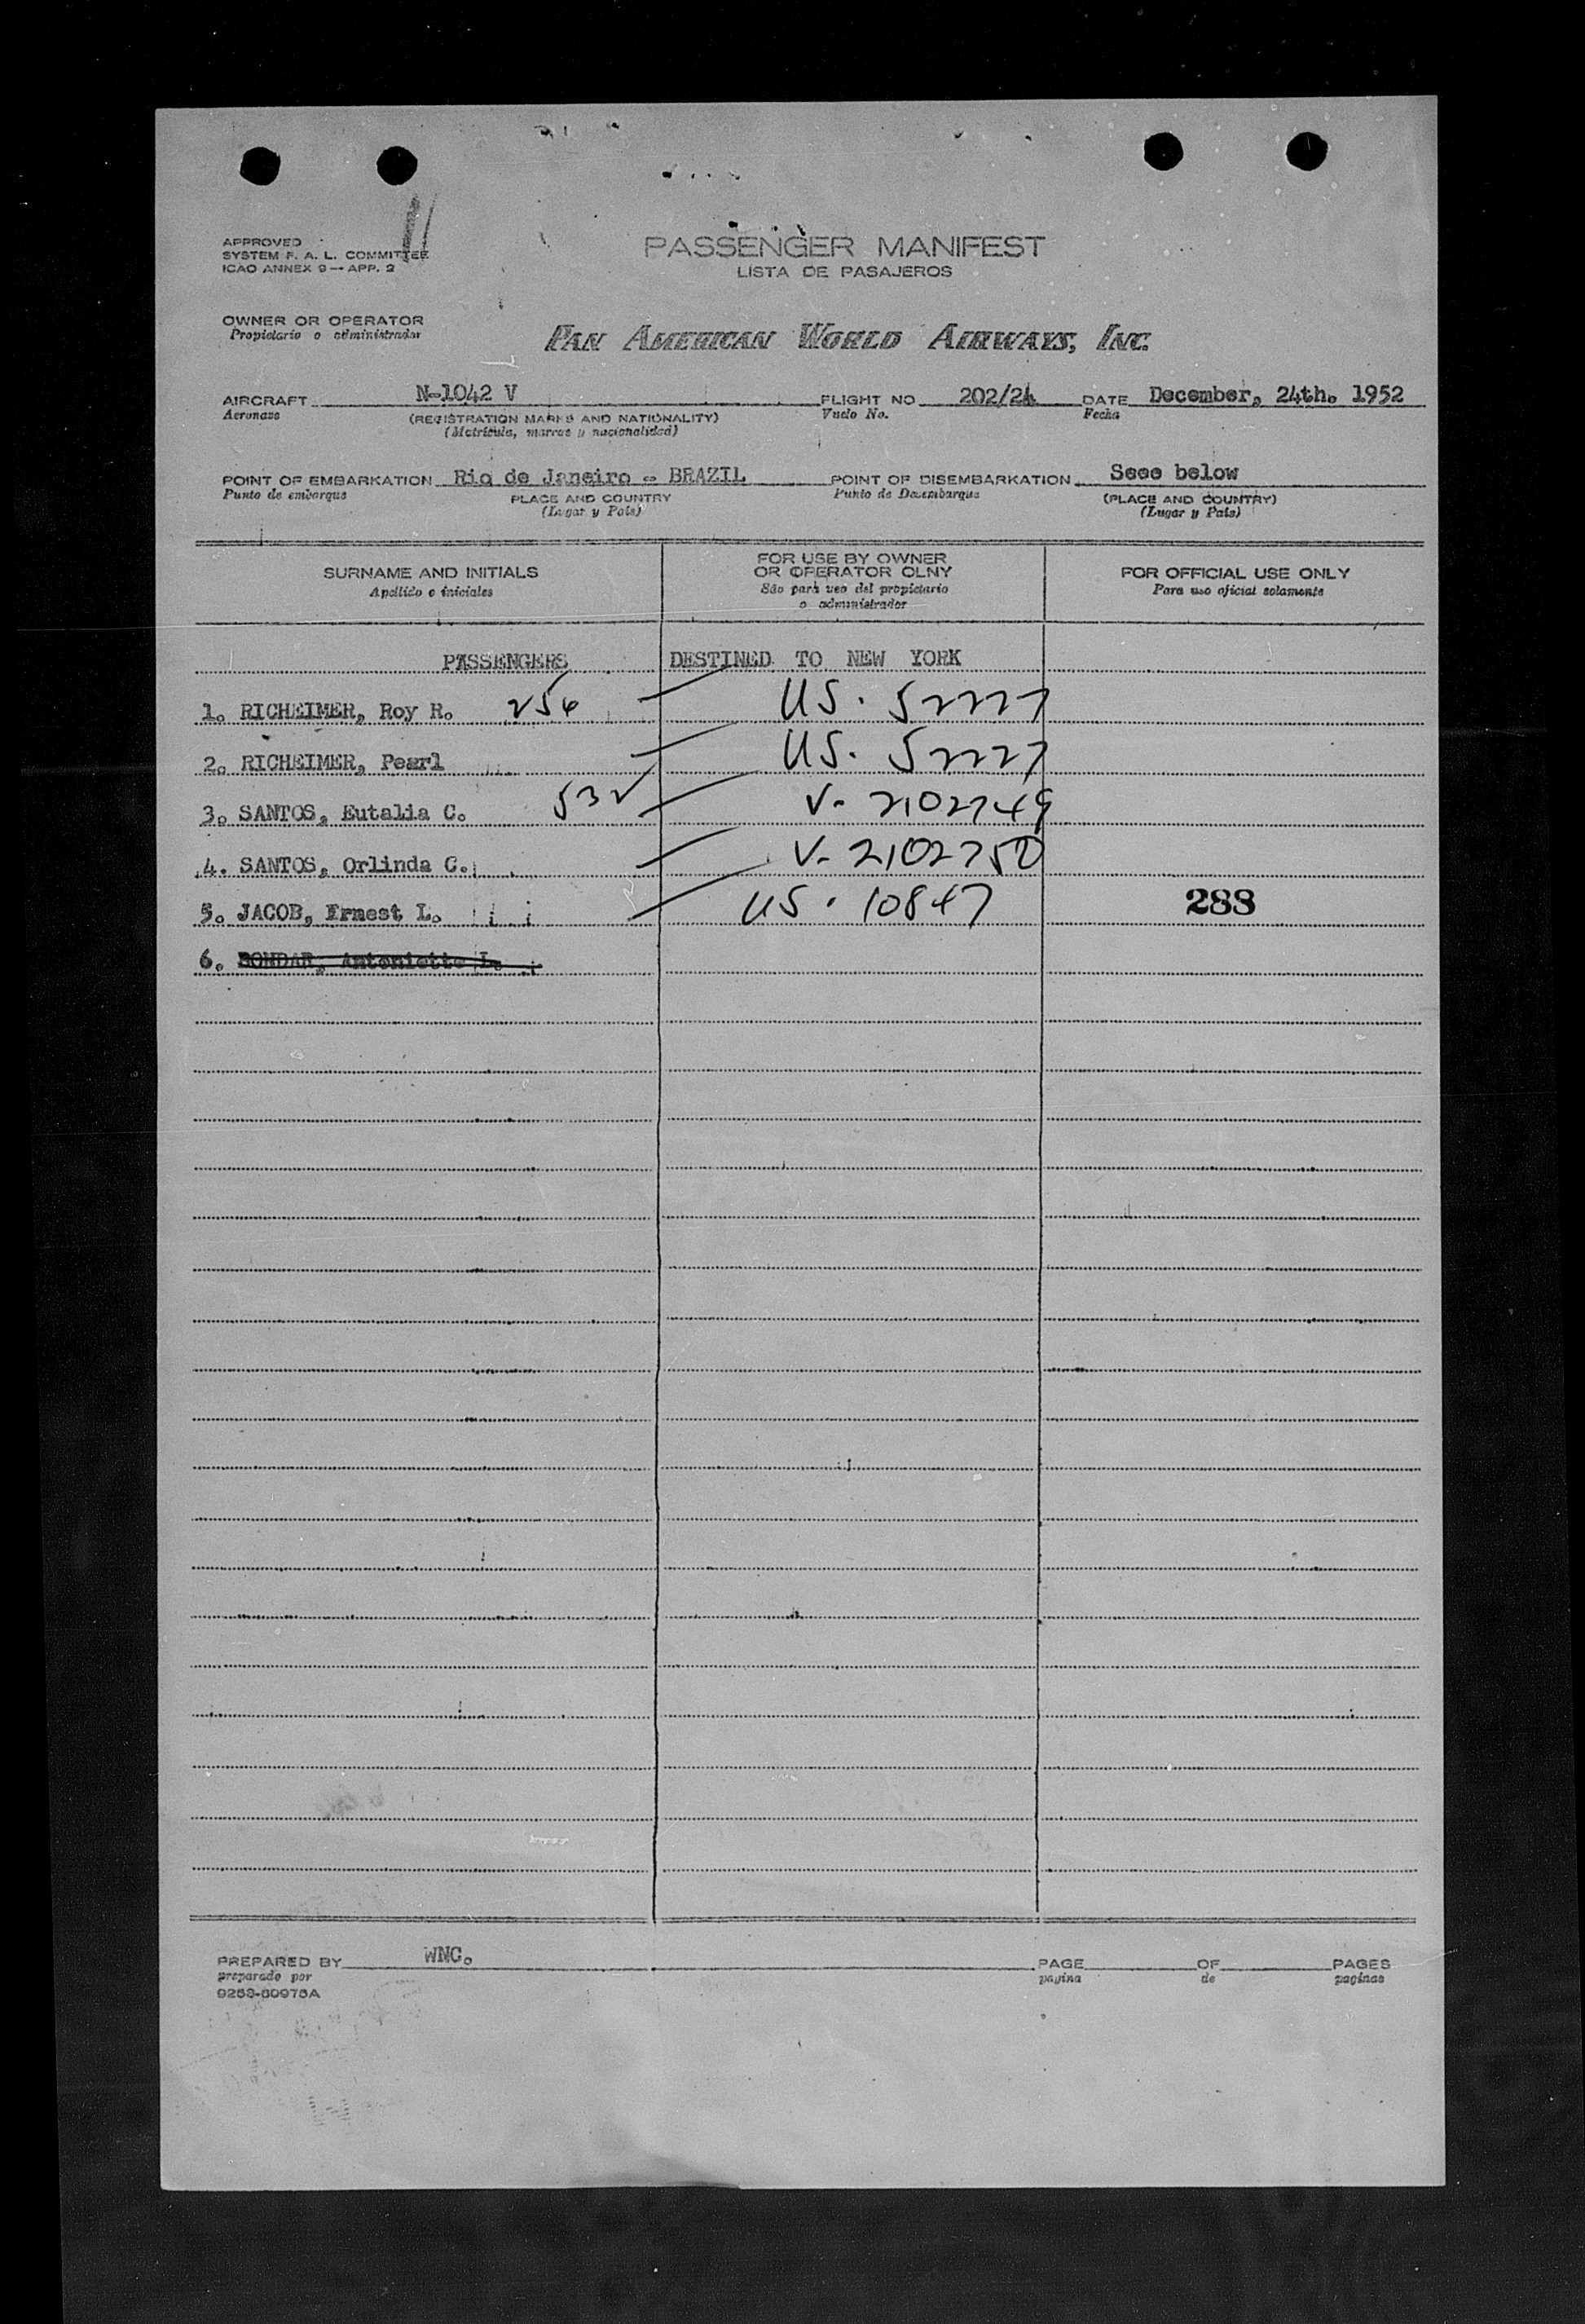 11
APPROVED
SYSTEM F. A. L. COMMITTEE
ICAO ANNEX 9 — APP. 2
PASSENGER MANIFEST
LISTA DE PASAJEROS
OWNER OR OPERATOR
Propietario o administrador
PAN AMERICAN WORLD AIRWAYS, INC.
AIRCRAFT N-1042 V FLIGHT NO 202/24 DATE December, 24th. 1952
Aeronave (REGISTRATION MARKS AND NATIONALITY) Vuelo No. Fecha
(Matricula, marcas y nacionalidad)
POINT OF EMBARKATION Rio de Janeiro - BRAZIL POINT OF DISEMBARKATION Seee below
Punto de embarque PLACE AND COUNTRY Punto de Desembarque (PLACE AND COUNTRY)
(Lugar y Pais) (Lugar y Pais)
SURNAME AND INITIALS FOR USE BY OWNER OR OPERATOR OLNY FOR OFFICIAL USE ONLY
Apellido e iniciales São para uso del propietario o administrador Para uso oficial solamente
PASSENGERS DESTINED TO NEW YORK
1. RICHEIMER, Roy R. 256 US. 52227
2. RICHEIMER, Pearl US. 52227
3. SANTOS, Eutalia C. 532 V- 2102749
4. SANTOS, Orlinda C. V- 2102750
5. JACOB, Ernest L. US. 10847 288
6. Antonietta L.
PREPARED BY WNC. PAGE OF PAGES
preparado por pagina de paginas
9263-60975A